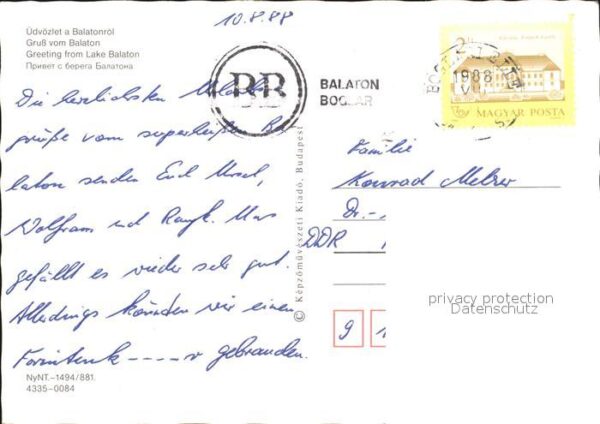 10.8.88
Üdvözlet a Balatonról
Gruß vom Balaton
Greeting from Lake Balaton
Привет с берега Балатона
BR
BALATON
BOGLAR
1988
MAGYAR POSTA
Die herzlichsten
grüße vom superheißen Ba-
laton senden Euch
Wolfram und Uns
gefällt es wieder sehr gut.
Allerdings könnten wir einen
Forintenk----r gebrauchen.
© Képzőművészeti Kiadó, Budapest
Familie
Konrad Melzer
Dr.-
DDR
9 1
privacy protection
Datenschutz
NyNT.-1494/881.
4335-0084